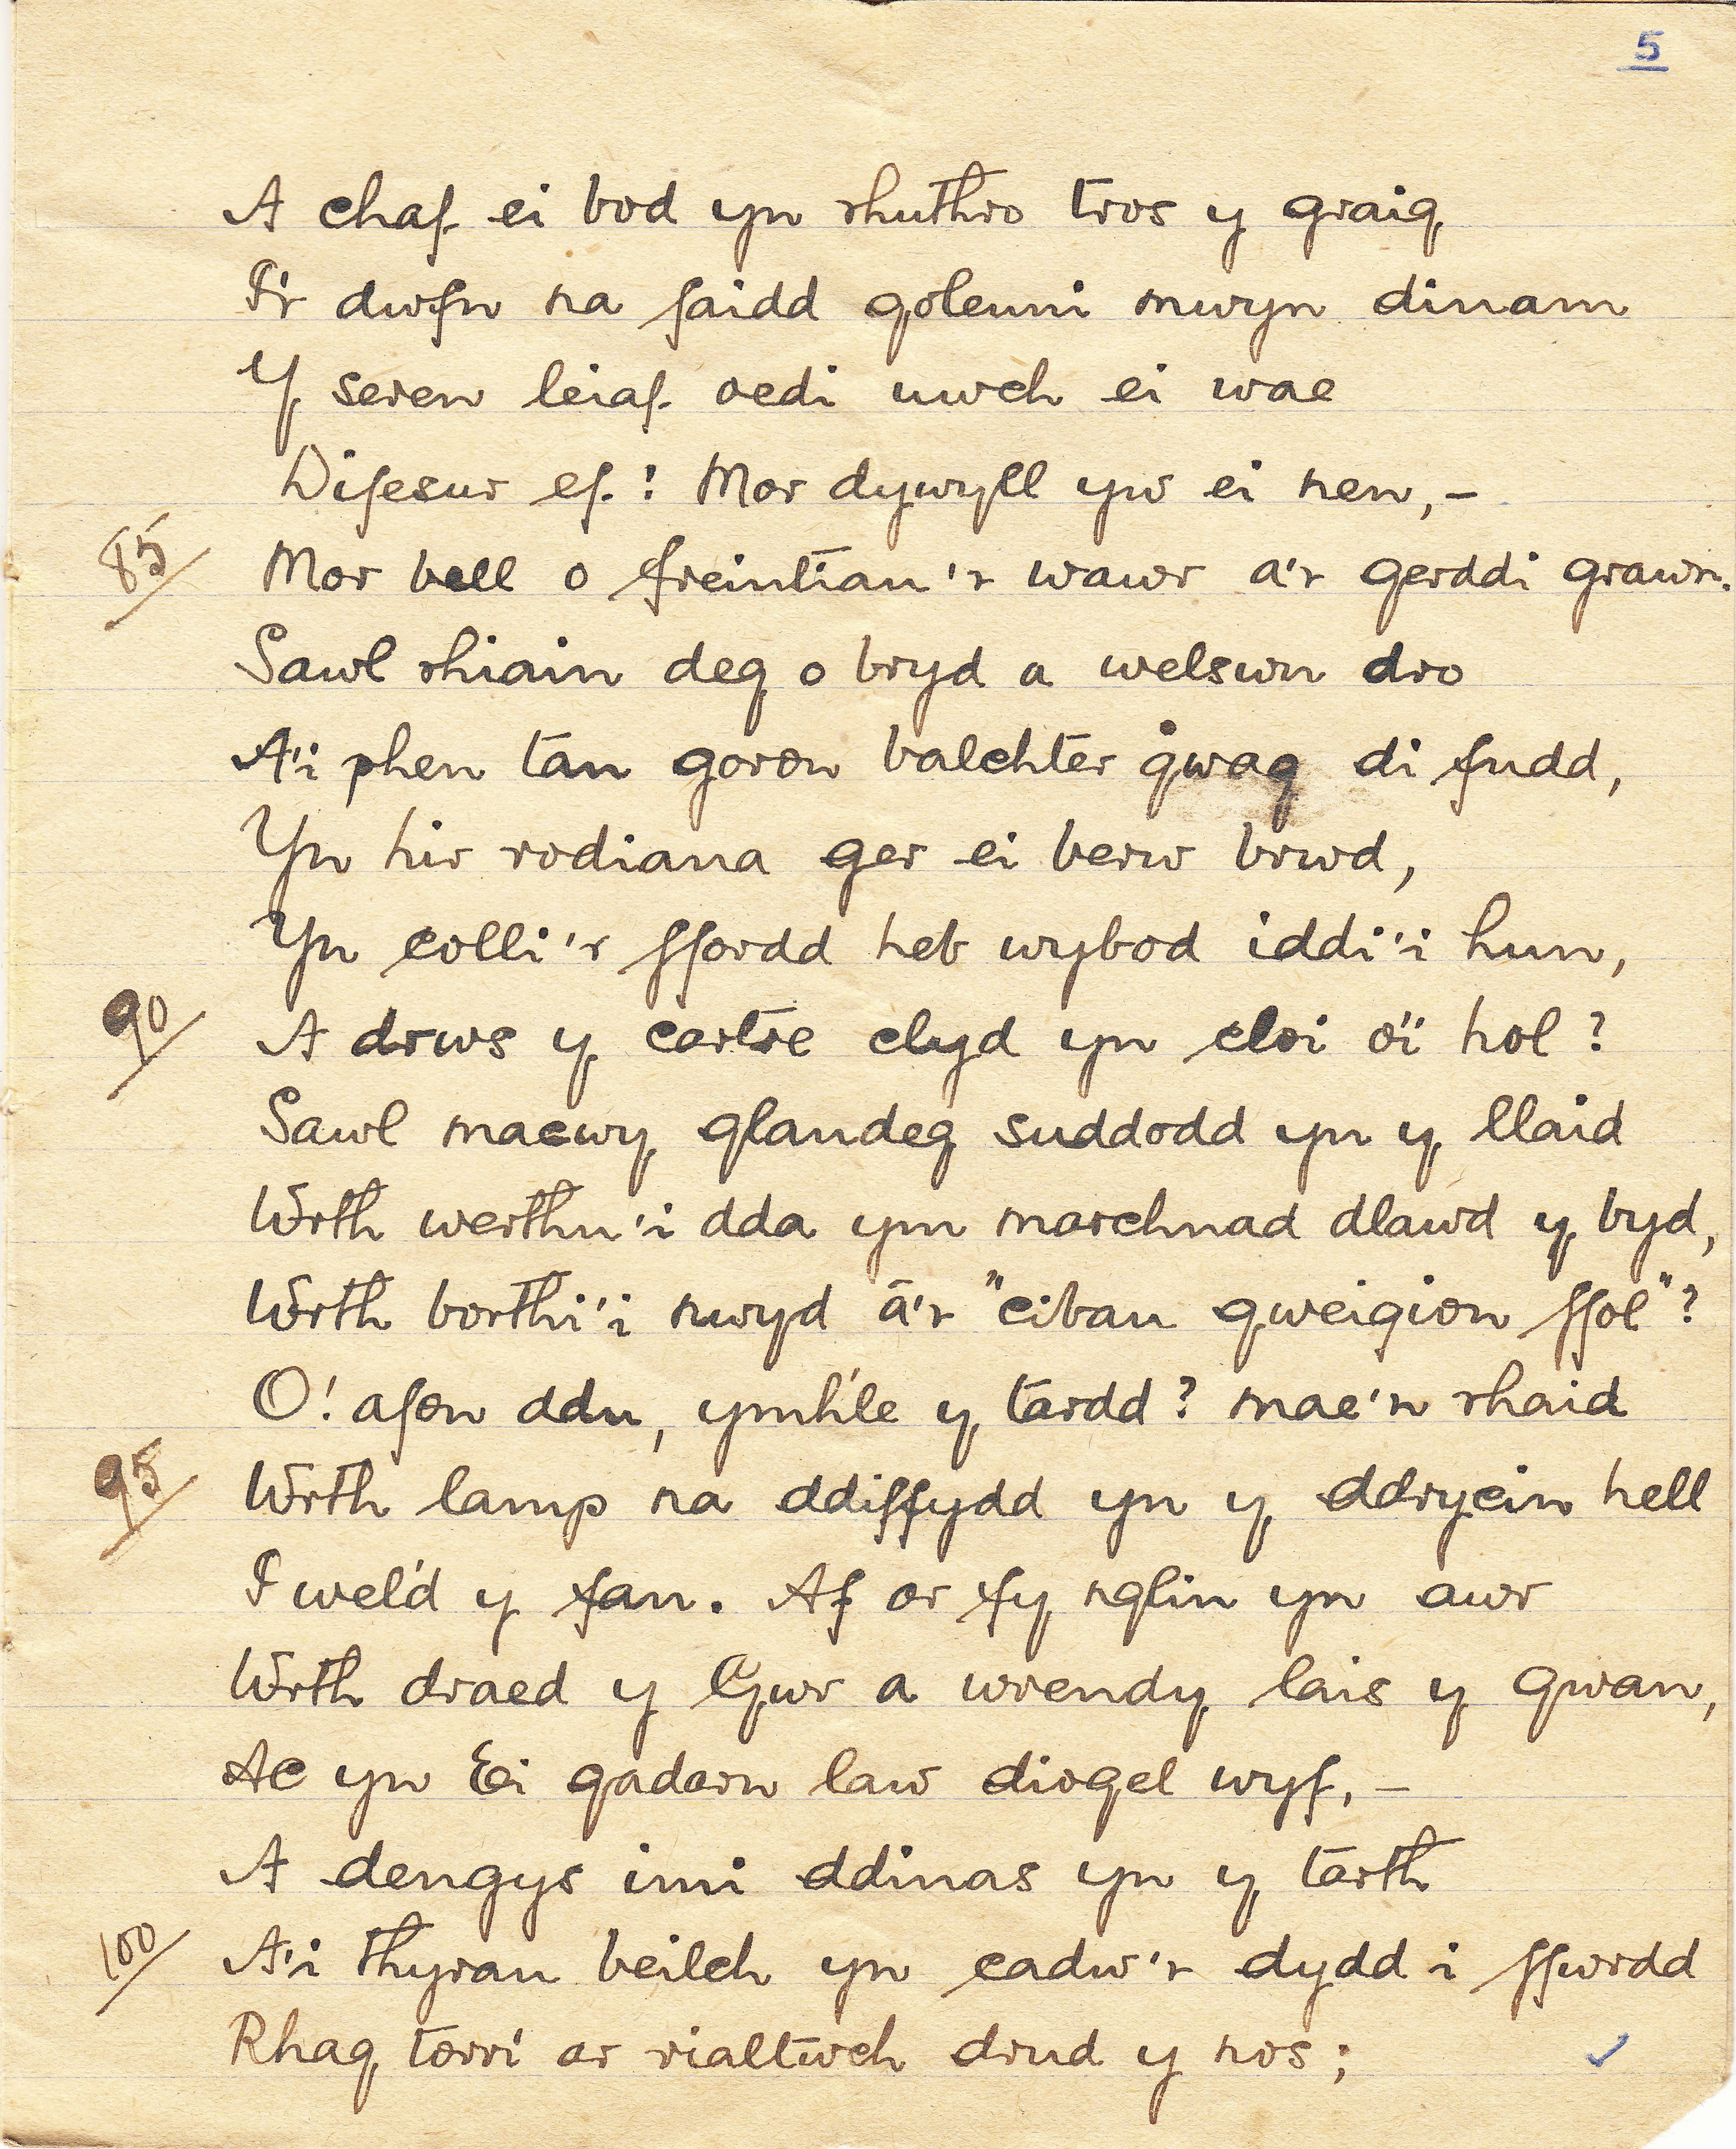 5
A chaf ei bod yn rhuthro tros y graig
I'r dwfn na faidd goleuni mwyn dinam
Y seren leiaf oedi uwch ei wae
Difesur ef! Mor dywyll yw ei nen,-
85/ Mor bell o freintiau'r wawr a'r gerddi grawn.
Sawl rhiain deg o bryd a welswn dro
A'i phen tan goron balchter gwag di fudd,
Yn hir rodiana ger ei berw brwd,
Yn colli'r ffordd heb wybod iddi'i hun,
90/ A drws y cartre clyd yn cloi o'i hol?
Sawl macwy glandeg suddodd yn y llaid
Wrth werthu'i dda ym marchnad dlawd y byd,
Wrth borthi'i nwyd â'r "cibau gweigion ffol"?
O! afon ddu, ymh'le y tardd? mae'n rhaid
95/ Wrth lamp na ddiffydd yn y ddrycin hell
I wel'd y fan. Af ar fy nglin yn awr
Wrth draed y Gŵr a wrendy lais y gwan,
Ac yn Ei gadarn law diogel wyf,-
A dengys imi ddinas yn y tarth
100/ A'i thyrau beilch yn cadw'r dydd i ffwrdd
Rhag torri ar rialtwch drud y nos;